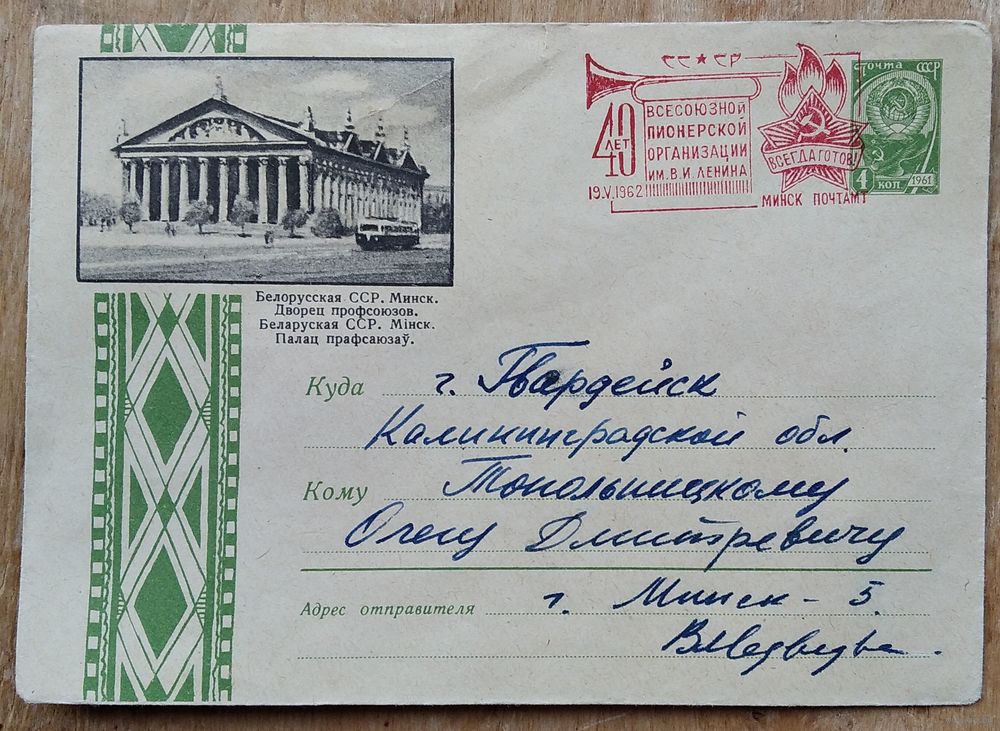 СС★СР
40 ЛЕТ
ВСЕСОЮЗНОЙ
ПИОНЕРСКОЙ
ОРГАНИЗАЦИИ
ИМ. В. И. ЛЕНИНА
19.V.1962
ВСЕГДА ГОТОВ!
МИНСК ПОЧТАМТ
ПОЧТА СССР
4 КОП
1961
Белорусская ССР. Минск.
Дворец профсоюзов.
Беларуская ССР. Мінск.
Палац прафсаюзаў.
Куда г. Гвардейск
Калининградской обл.
Кому Топольницкому
Олегу Дмитревичу
Адрес отправителя г. Минск - 5.